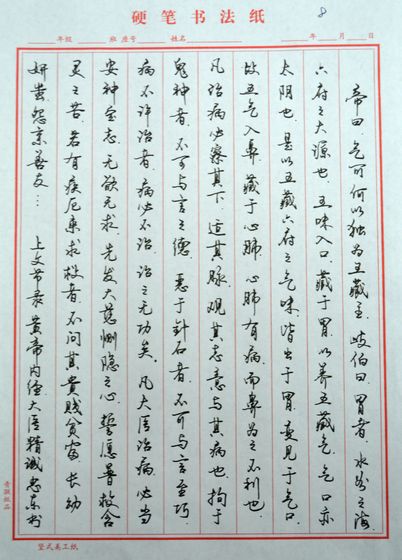 硬笔书法纸
年级 班 座号 姓名 年 月 日
8
帝曰 气口何以独为五藏主 岐伯曰 胃者 水谷之海
六府之大源也 五味入口 藏于胃 以养五藏气 气口亦
太阴也 是以五藏六府之气味 皆出于胃 变见于气口
故五气入鼻 藏于心肺 心肺有病 而鼻为之不利也
凡治病必察其下 适其脉 观其志意与其病也 拘于
鬼神者 不可与言至德 恶于针石者 不可与言至巧
病不许治者 病必不治 治之无功矣 凡大医治病 必当
安神定志 无欲无求 先发大慈恻隐之心 誓愿普救含
灵之苦 若有疾厄来求救者 不问其贵贱贫富 长幼
妍蚩 怨亲善友… 上文节录黄帝内经大医精诚 忠东书
青联纸品
竖式美工纸